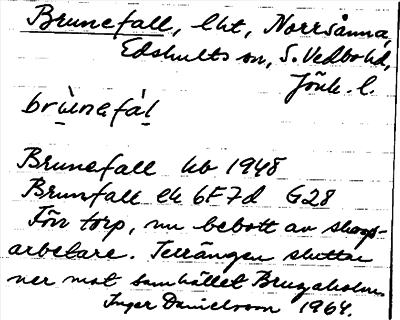 Brunefall, lht, Norrsånna,
Edshults sn, S. Vedbo hd,
Jönk. l.
brùnefàl
Brunefall hb 1948
Brunfall ek 6F7d G28
Förr torp, nu bebott av skogs-
arbetare. Terrängen sluttar
ner mot samhället Bruzaholm.
Inger Danielsson 1964.